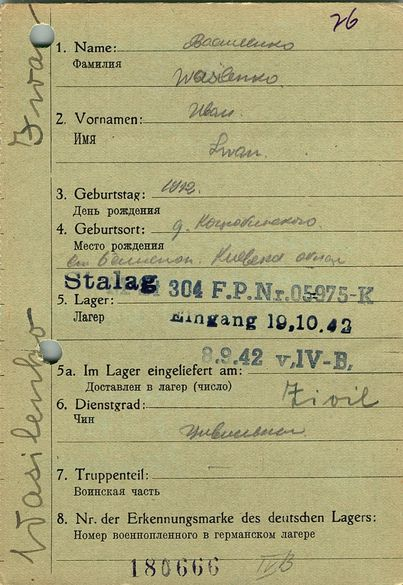 26
1. Name: Василенко
Фамилия
Wasilenko
2. Vornamen: Иван.
Имя
Iwan.
3. Geburtstag: 1912.
День рождения
4. Geburtsort: д.
Место рождения
Киевская
Stalag 304 F.P.Nr.05975-K
5. Lager:
Лагер
Eingang 19.10.42
8.9.42 v,IV-B,
5a. Im Lager eingeliefert am:
Доставлен в лагер (число)
6. Dienstgrad: Zivil
Чин
7. Truppenteil:
Воинская часть
8. Nr. der Erkennungsmarke des deutschen Lagers:
Номер военнопленного в германском лагере
180666 IVB
Wasilenko Iwan